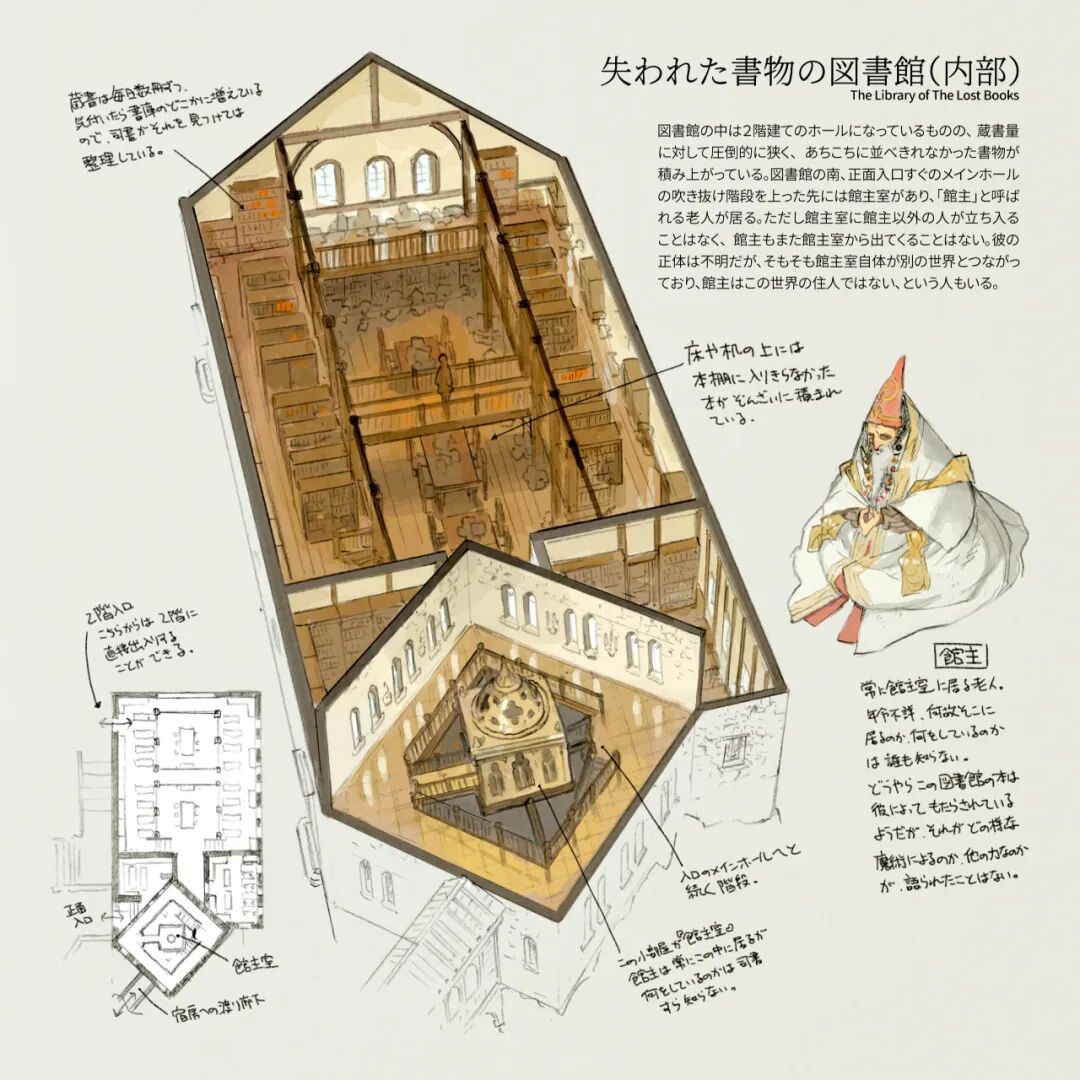 失われた書物の図書館(内部)
The Library of The Lost Books
図書館の中は2階建てのホールになっているものの、蔵書量
に対して圧倒的に狭く、あちこちに並べきれなかった書物が
積み上がっている。図書館の南、正面入口すぐのメインホール
の吹き抜け階段を上った先には館主室があり、「館主」と呼ば
れる老人が居る。ただし館主室に館主以外の人が立ち入る
ことはなく、館主もまた館主室から出てくることはない。彼の
正体は不明だが、そもそも館主室自体が別の世界とつながっ
ており、館主はこの世界の住人ではない、という人もいる。
蔵書は毎日数冊ずつ、
気付いたら書庫のどこかに増えている
ので、司書がそれを見つけては
整理している。
床や机の上には
本棚に入りきらなかった
本がぞんざいに積まれ
ている。
館主
常に館主室に居る老人。
年令不詳、何故そこに
居るのか、何をしているのか
は誰も知らない。
どうやらこの図書館の本は
彼によってもたらされている
ようだが、それがどの様な
魔術によるのか、他の力なのか
が、語られたことはない。
2階入口
こちらからは2階に
直接出入りする
ことができる。
正面
入口
館主室
宿房への渡り廊下
入口のメインホールへと
続く階段。
この小部屋が『館主室』。
館主は常にこの中に居るが
何をしているのかは司書
すら知らない。